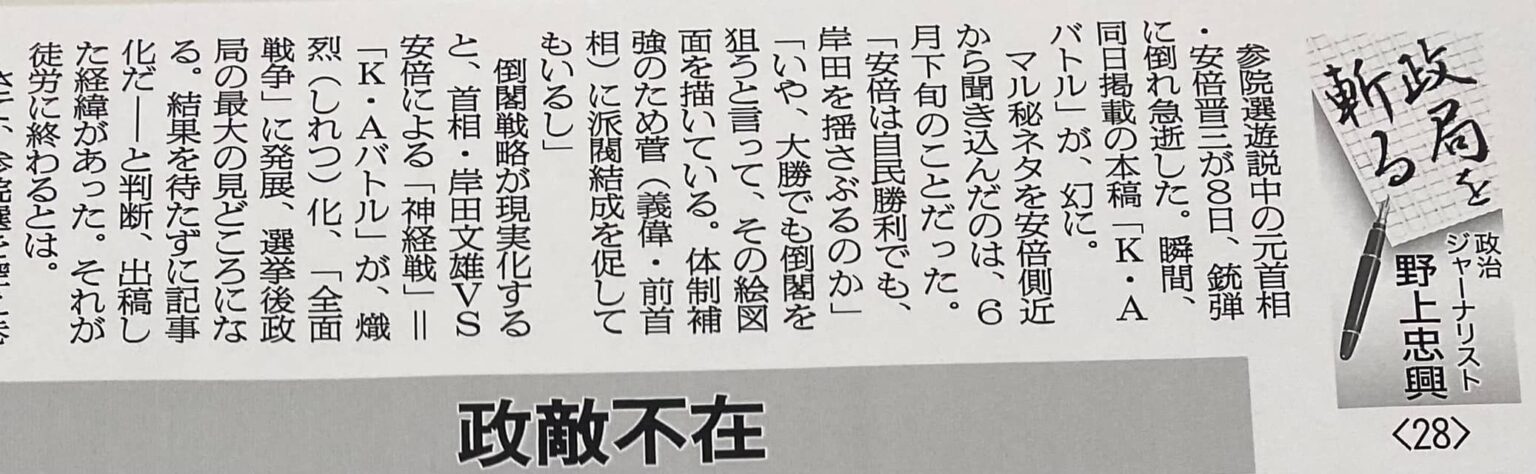 政局を
斬る
政治
ジャーナリスト
野上忠興
〈28〉
参院選遊説中の元首相
・安倍晋三が8日、銃弾
に倒れ急逝した。瞬間、
同日掲載の本稿「K・A
バトル」が、幻に。
マル秘ネタを安倍側近
から聞き込んだのは、6
月下旬のことだった。
「安倍は自民勝利でも、
岸田を揺さぶるのか」
「いや、大勝でも倒閣を
狙うと言って、その絵図
面を描いている。体制補
強のため菅(義偉・前首
相)に派閥結成を促して
もいるし」
倒閣戦略が現実化する
と、首相・岸田文雄VS
安倍による「神経戦」=
「K・Aバトル」が、熾
烈(しれつ)化、「全面
戦争」に発展、選挙後政
局の最大の見どころにな
る。結果を待たずに記事
化だ――と判断、出稿し
た経緯があった。それが
徒労に終わるとは。
政敵不在